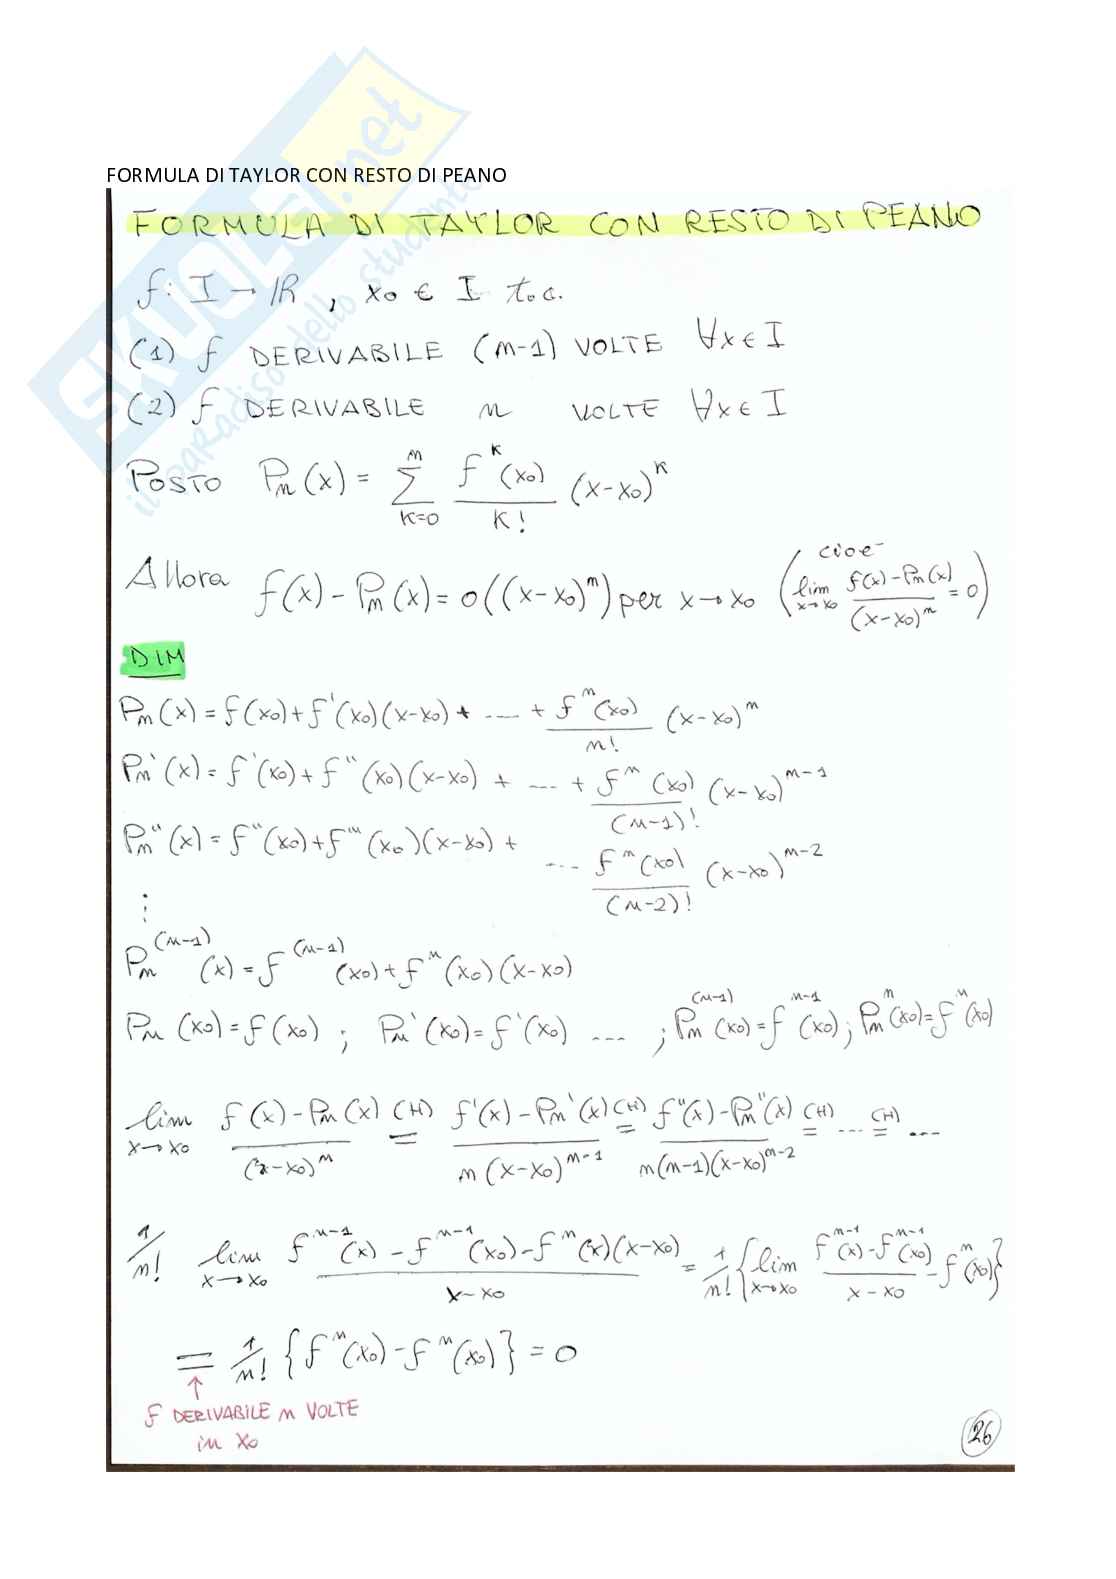 SKUOLA.net
il paradiso dello studente
FORMULA DI TAYLOR CON RESTO DI PEANO
FORMULA DI TAYLOR CON RESTO DI PEANO
f: I → ℝ , x₀ ∈ I t.c.
(1) f DERIVABILE (n-1) VOLTE ∀x∈I
(2) f DERIVABILE n VOLTE ∀x∈I
POSTO Pn(x) = ∑_{K=0}^{n} f^K(x₀)/K! (x-x₀)^K
Allora f(x) - Pn(x) = o((x-x₀)^n) per x→x₀ (cioè lim_{x→x₀} (f(x)-Pn(x))/(x-x₀)^n = 0)
DIM
Pn(x) = f(x₀) + f'(x₀)(x-x₀) + .... + f^n(x₀)/n! (x-x₀)^n
Pn'(x) = f'(x₀) + f''(x₀)(x-x₀) + .... + f^n(x₀)/(n-1)! (x-x₀)^{n-1}
Pn''(x) = f''(x₀) + f'''(x₀)(x-x₀) + .... f^n(x₀)/(n-2)! (x-x₀)^{n-2}
⋮
Pn^{(n-1)}(x) = f^{(n-1)}(x₀) + f^n(x₀)(x-x₀)
Pn(x₀) = f(x₀) ; Pn'(x₀) = f'(x₀) .... ; Pn^{(n-1)}(x₀) = f^{n-1}(x₀) ; Pn^n(x₀) = f^n(x₀)
lim_{x→x₀} (f(x)-Pn(x))/(x-x₀)^n =(H) (f'(x)-Pn'(x))/(n(x-x₀)^{n-1}) =(H) (f''(x)-Pn''(x))/(n(n-1)(x-x₀)^{n-2}) =(H) ... =(H) ...
1/n! lim_{x→x₀} (f^{n-1}(x) - f^{n-1}(x₀) - f^n(x)(x-x₀))/(x-x₀) = 1/n! {lim_{x→x₀} (f^{n-1}(x) - f^{n-1}(x₀))/(x-x₀) - f^n(x₀)}
= 1/n! {f^n(x₀) - f^n(x₀)} = 0
↑
f DERIVABILE n VOLTE
in x₀
26